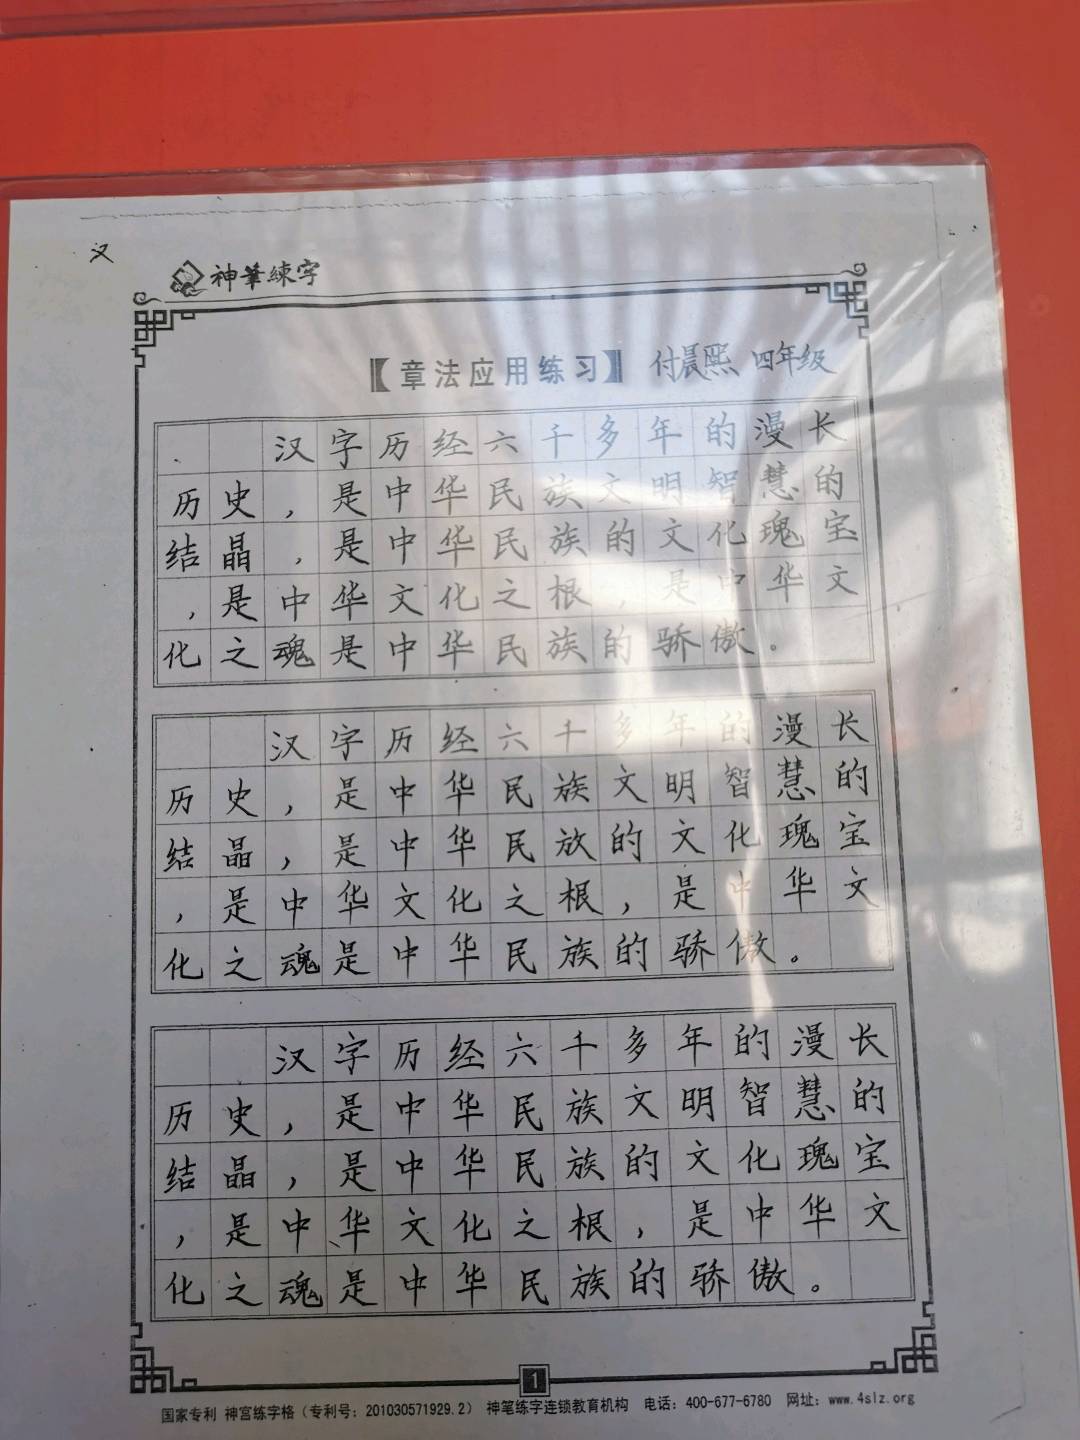 汉
神筆練字
【章法应用练习】 付晨熙 四年级
汉字历经六千多年的漫长
历史，是中华民族文明智慧的
结晶，是中华民族的文化瑰宝
，是中华文化之根，是中华文
化之魂是中华民族的骄傲。
汉字历经六千多年的漫长
历史，是中华民族文明智慧的
结晶，是中华民放的文化瑰宝
，是中华文化之根，是中华文
化之魂是中华民族的骄傲。
汉字历经六千多年的漫长
历史，是中华民族文明智慧的
结晶，是中华民族的文化瑰宝
，是中华文化之根，是中华文
化之魂是中华民族的骄傲。
1
国家专利 神宫练字格（专利号：201030571929.2） 神笔练字连锁教育机构 电话：400-677-6780 网址：www.4slz.org